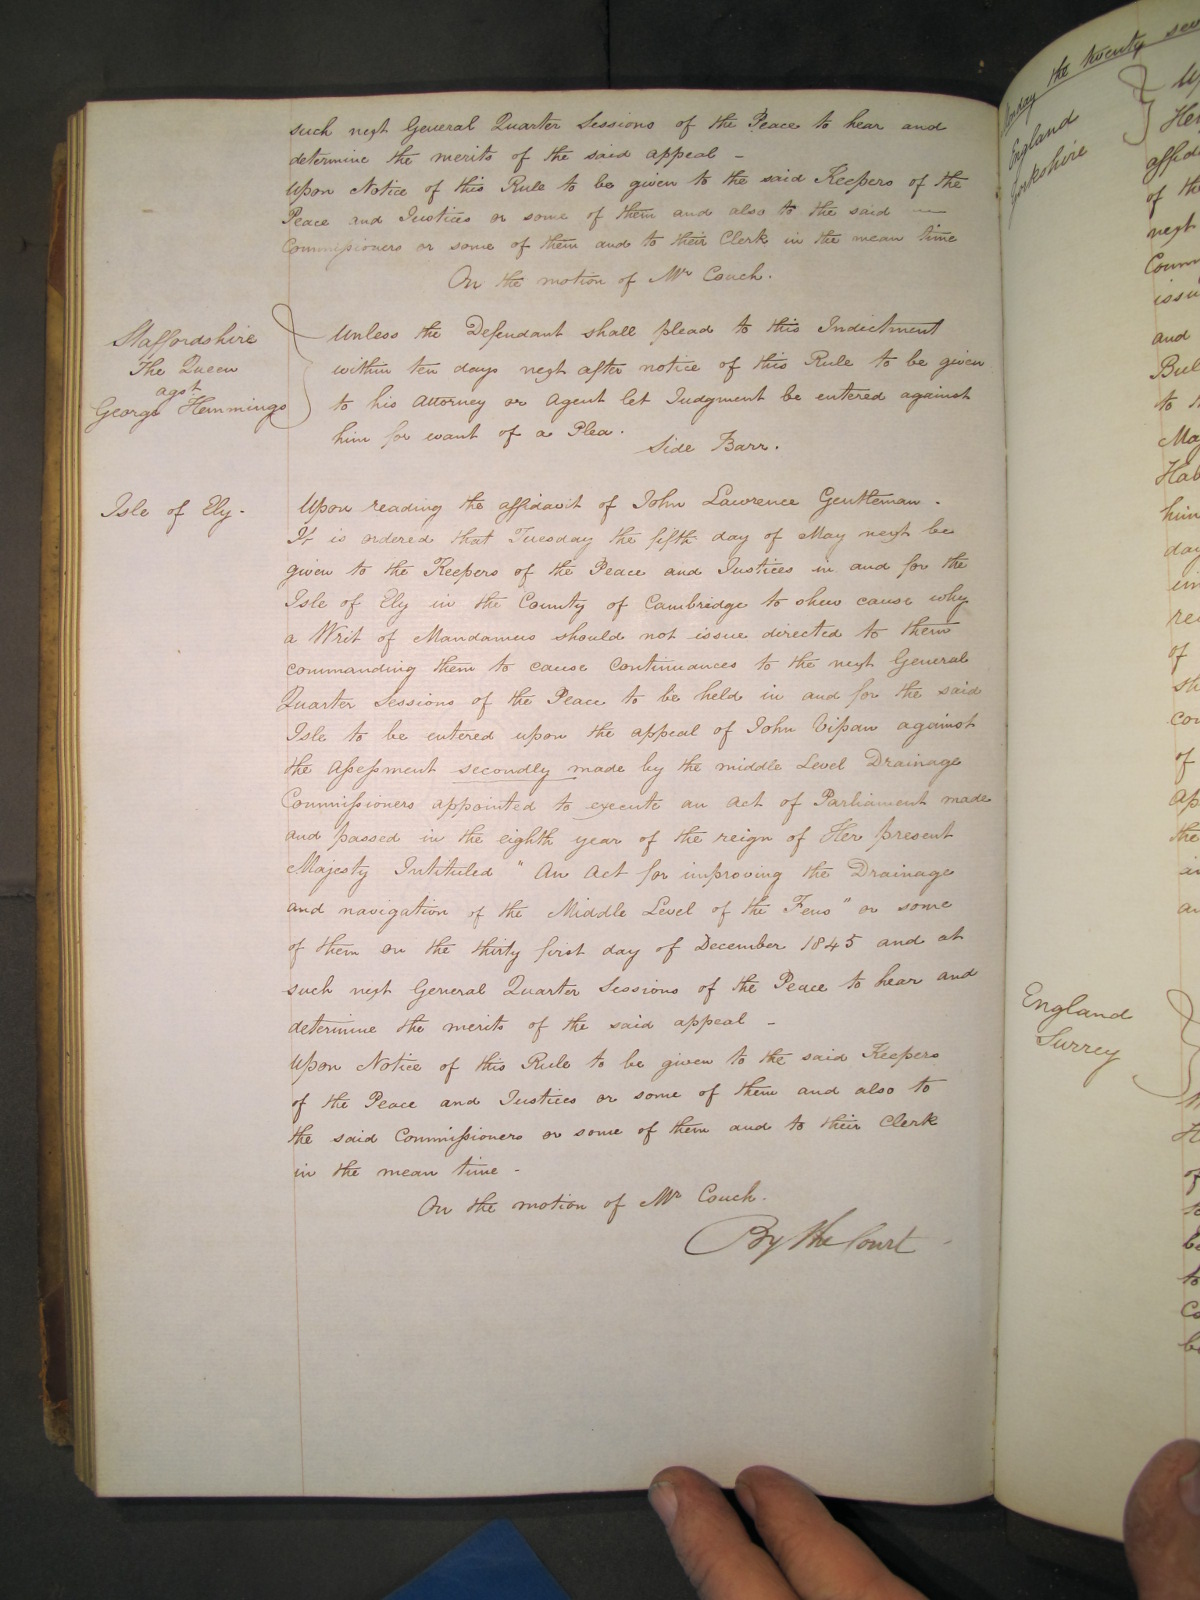 such next General Quarter Sessions of the Peace to hear and
determine the merits of the said appeal –
Upon Notice of this Rule to be given to the said Keepers of the
Peace and Justices or some of them and also to the said —
Commissioners or some of them and to their Clerk in the mean time
On the motion of Mr Couch.
Staffordshire
The Queen
agst
George Hemmings
Unless the Defendant shall plead to this Indictment
within ten days next after notice of this Rule to be given
to his Attorney or Agent let Judgment be entered against
him for want of a Plea.
Side Barr.
Isle of Ely.
Upon reading the affidavit of John Lawrence Gentleman.
It is ordered that Tuesday the fifth day of May next be
given to the Keepers of the Peace and Justices in and for the
Isle of Ely in the County of Cambridge to shew cause why
a Writ of Mandamus should not issue directed to them
commanding them to cause Continuances to the next General
Quarter Sessions of the Peace to be held in and for the said
Isle to be entered upon the appeal of John Vipan against
the Assessment secondly made by the middle Level Drainage
Commissioners appointed to execute an Act of Parliament made
and passed in the eighth year of the reign of Her present
Majesty Intituled "An Act for improving the Drainage
and navigation of the Middle Level of the Fens" or some
of them on the thirty first day of December 1845 and at
such next General Quarter Sessions of the Peace to hear and
determine the merits of the said appeal –
Upon Notice of this Rule to be given to the said Keepers
of the Peace and Justices or some of them and also to
the said Commissioners or some of them and to their Clerk
in the mean time –
On the motion of Mr Couch.
By the Court
the twenty
England
Yorkshire
of the
next
and
to
him
of
of
the
England
Surrey
of
to